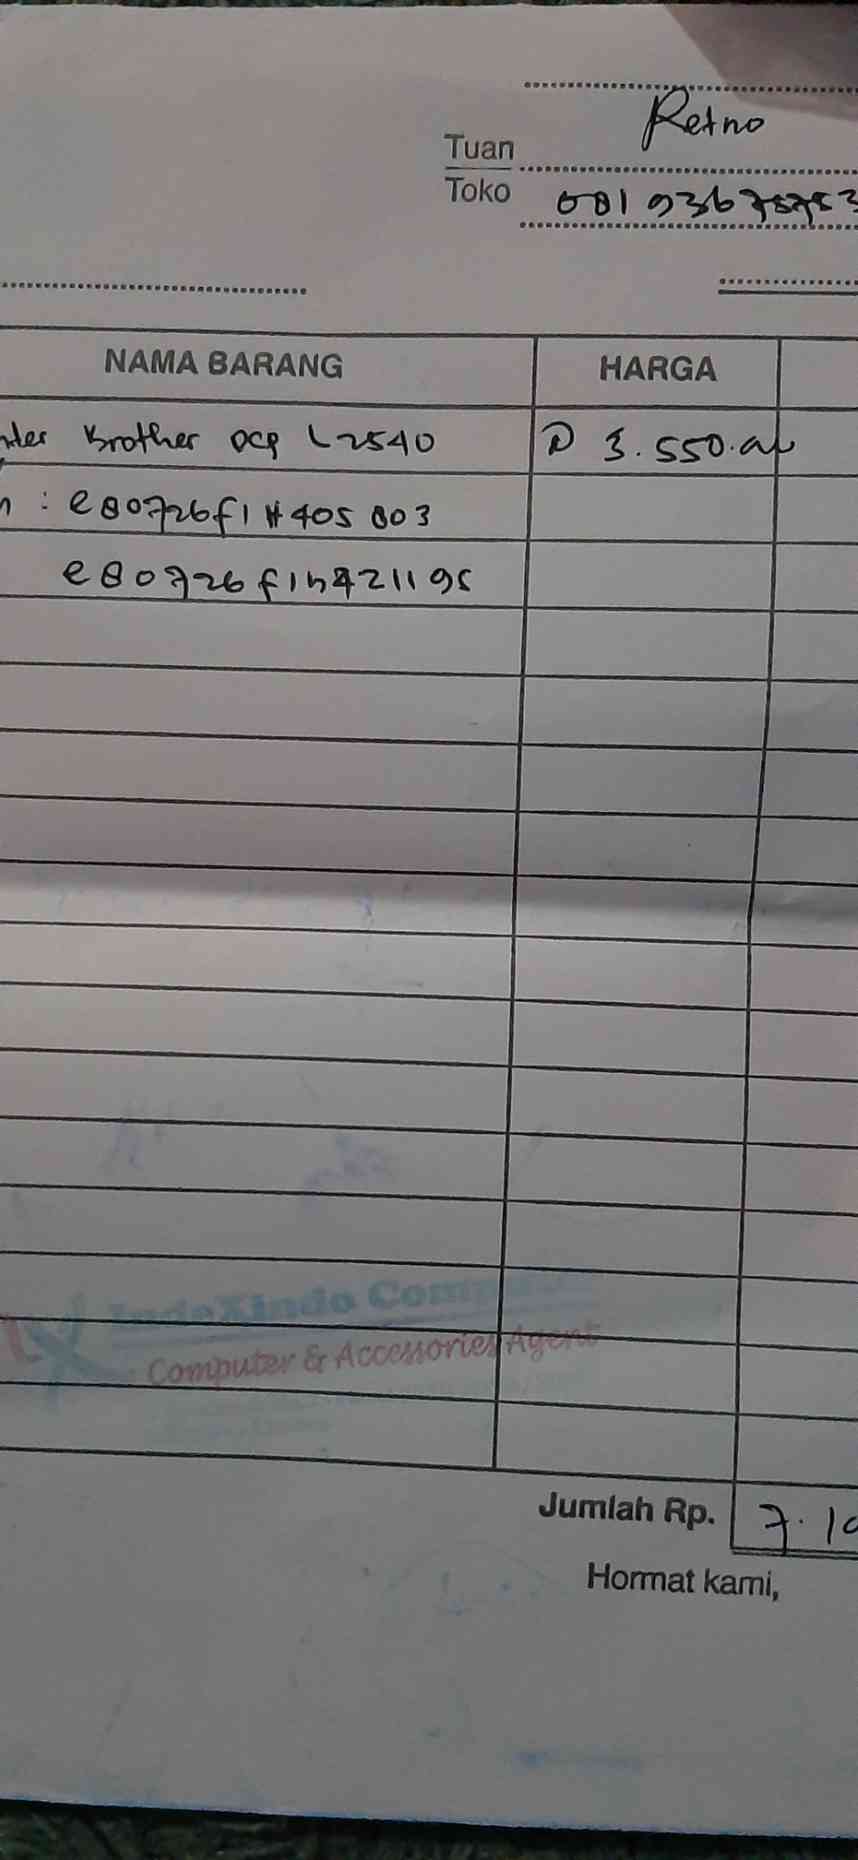 Retno
Tuan
Toko 081 936 757573
NAMA BARANG HARGA
nter Brother DCP L2540 @ 3.550.000
n : e80726f1H405803
e80726f1h421195
IndeXindo Computer
Computer & Accessories Agent
Jumlah Rp. 7.10
Hormat kami,